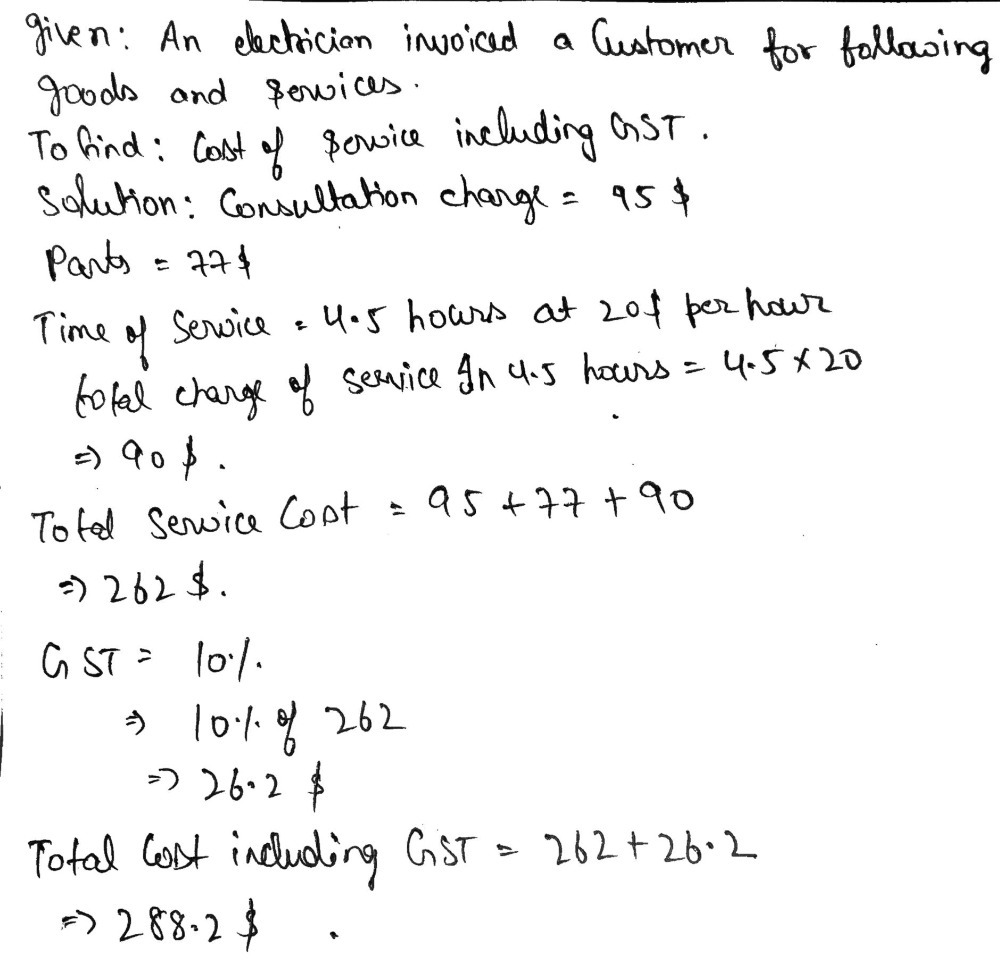 given: An electrician invoiced a Customer for following
goods and services.
To find: Cost of service including GST.
Solution: Consultation charge = 95 $
Parts = 77 $
Time of Service = 4.5 hours at 20 $ per hour
total charge of service In 4.5 hours = 4.5 × 20
⇒ 90 $.
Total Service Cost = 95 + 77 + 90
⇒ 262 $.
GST = 10%.
⇒ 10% of 262
⇒ 26.2 $
Total Cost including GST = 262 + 26.2
⇒ 288.2 $ .